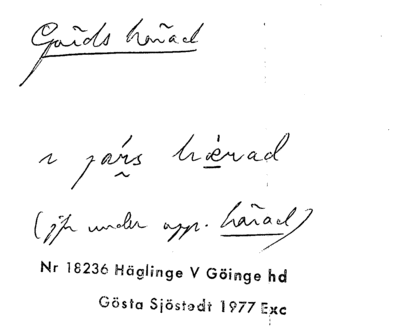 Gärds härad
hærad
(jfr under app. härad)
Nr 18236 Häglinge V Göinge hd
Gösta Sjöstedt 1977 Exc